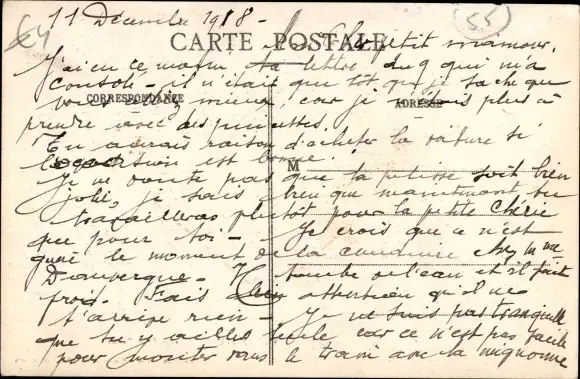 11 Décembre 1918 -
€4
55
CARTE POSTALE
petit mamour,
J'ai eu ce matin ta lettre du 9 qui m'a
consolé - il n'était que tôt que je sache que
CORRESPONDANCE
mieux car je plus à
ADRESSE
prendre avec des pincettes.
Tu aurais raison d'acheter la voiture si
l'occasion est bonne.
M
Je ne doute pas que ta pelisse soit bien
jolie, je sais bien que maintenant tu
travailleras plutôt pour la petite chérie
que pour toi - Je crois que ce n'est
guère le moment de la conduire chez Mme
Dauvergne - tombe de l'eau et il fait
froid. Fais attention qu'il ne
t'arrive rien - Je ne suis pas tranquille
que tu y ailles seule car ce n'est pas facile
pour monter dans le train avec ta mignonne